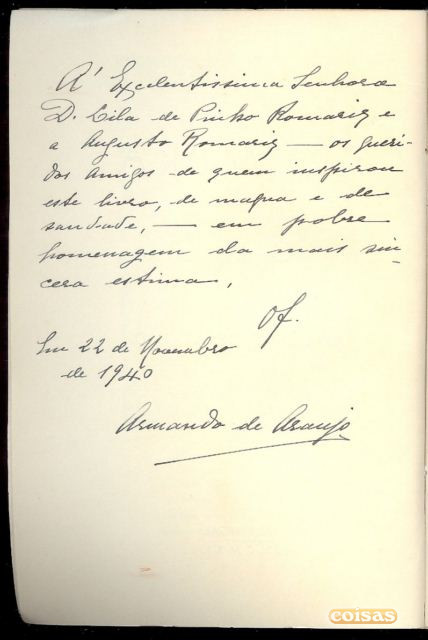 A' Excelentissima Senhora
D. Lila de Pinho Romariz e
a Augusto Romariz — os queri-
dos amigos de quem inspirou
este livro, de magua e de
saudade, — em pobre
homenagem da mais sin-
cera estima,
Of.
Em 22 de Novembro
de 1940
Armando de Araujo
coisas